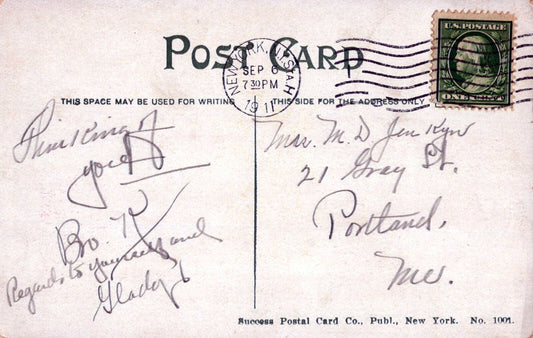 POST CARD
NEW YORK, N.Y. STA. H
SEP 6
7 30 PM
1911
U.S. POSTAGE
ONE CENT
THIS SPACE MAY BE USED FOR WRITING
THIS SIDE FOR THE ADDRESS ONLY
Thinking of
you
Bro.
Regards to yourself and
Gladys
Mrs. M. D. Jenkyn
21 Gray St.
Portland,
Me.
Success Postal Card Co., Publ., New York. No. 1001.